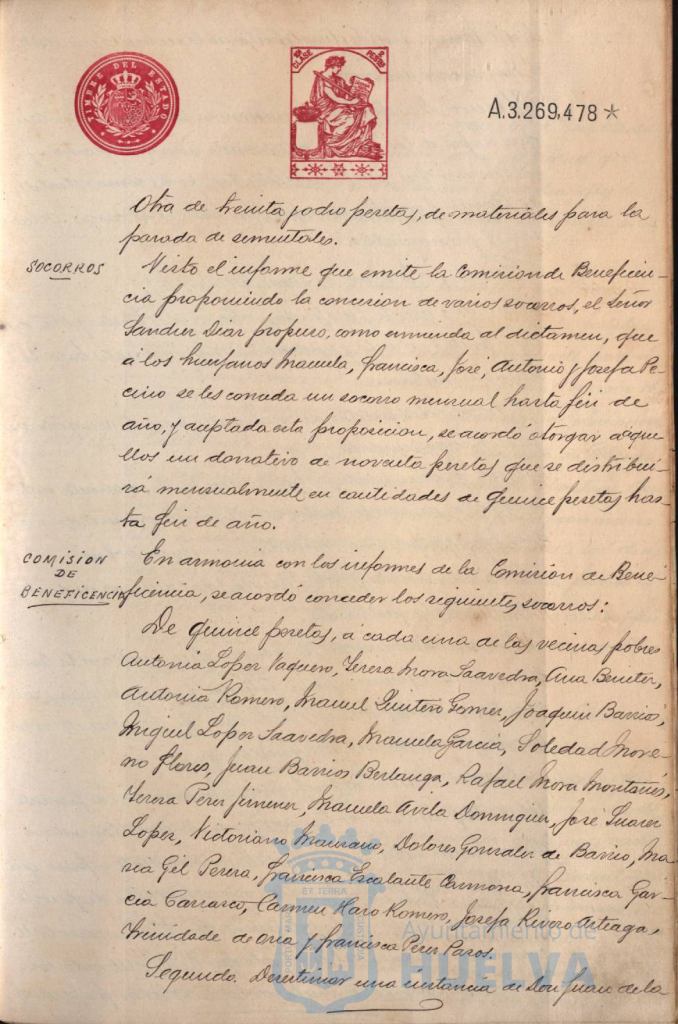 TIMBRE DEL ESTADO
CLASE
A.3.269,478
Otra de treinta y ocho pesetas, de materiales para la
parada de sementales.
SOCORROS
Visto el informe que emite la Comision de Beneficen-
cia proponiendo la concesion de varios socorros, el Señor
Sanchez Diaz propuso, como enmienda al dictamen, que
á los huerfanos Manuela, Francisca, José, Antonio y Josefa Pe-
cino se les conceda un socorro mensual hasta fin de
año, y aceptada esta proposicion, se acordó otorgar aque-
llos un donativo de noventa pesetas que se distribui-
rá mensualmente en cantidades de quince pesetas has-
ta fin de año.
COMISION
DE
BENEFICENCIA
En armonia con los informes de la Comision de Bene-
ficencia, se acordó conceder los siguientes socorros:
De quince pesetas, á cada una de las vecinas pobres
Antonia Lopez Vaquero, Teresa Mora Saavedra, Ana Benitez,
Antonia Romero, Manuel Quintero Gomez, Joaquin Barrios,
Miguel Lopez Saavedra, Manuela Garcia, Soledad More-
no Flores, Juan Barrios Berlanga, Rafael Mora Montañés,
Teresa Perez Jimenez, Manuela Avila Dominguez, José Suarez
Lopez, Victoriano Manzano, Dolores Gonzalez de Barrio, Ma-
ria Gil Perera, Francisca Escalante Carmona, Francisca Gar-
cia Carrasco, Carmen Haro Romero, Josefa Rivero Arteaga,
Trinidad de Oria y Francisca Perez Pazos.
Segundo. Desestimar una instancia de Don Juan de la
Ayuntamiento de
HUELVA